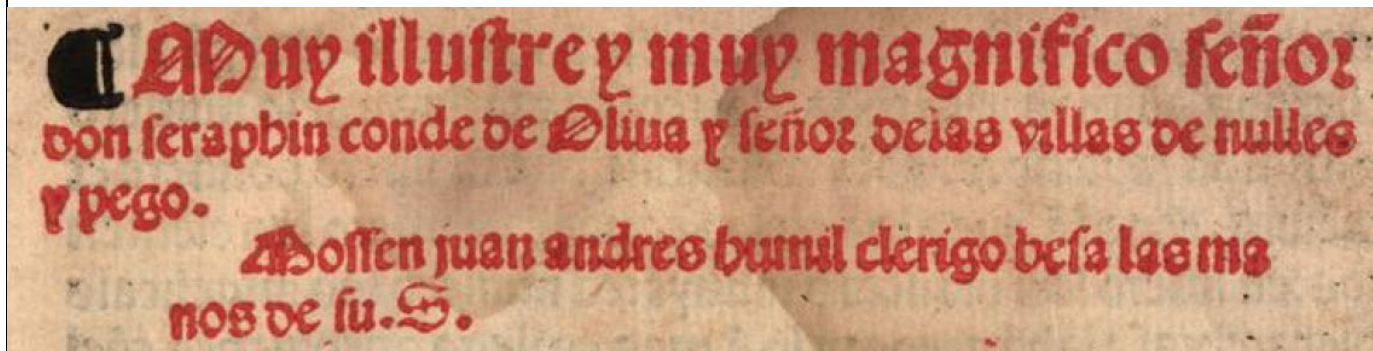 ¶ Muy illustre y muy magnifico señor
don seraphin conde de Oliua y señor delas villas de nulles
y pego.
Mossen juan andres humil clerigo besa las ma
nos de su. S.